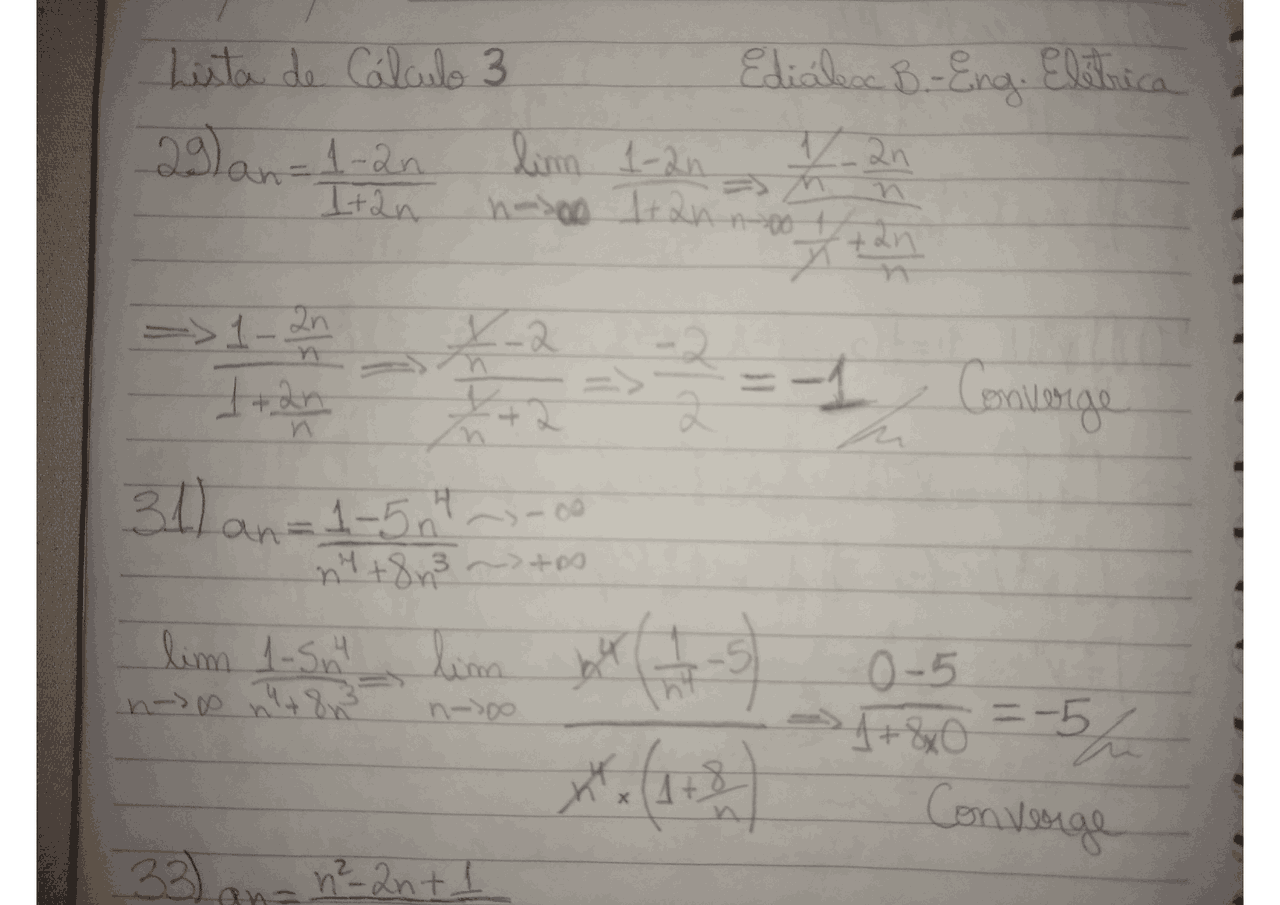 Lista de Cálculo 3 Ediálex B.-Eng. Elétrica
29) an = (1-2n)/(1+2n) lim n->∞ (1-2n)/(1+2n) => n->∞ (1/n - 2n/n)/(1/n + 2n/n)
=> (1 - 2n/n)/(1 + 2n/n) => (1/n - 2)/(1/n + 2) => -2/2 = -1// Converge
31) an = (1-5n⁴ ~> -∞)/(n⁴+8n³ ~> +∞)
lim n->∞ (1-5n⁴)/(n⁴+8n³) => lim n->∞ (n⁴(1/n⁴ - 5))/(n⁴ x (1 + 8/n)) => (0-5)/(1+8x0) = -5//
Converge
33) an = n²-2n+1